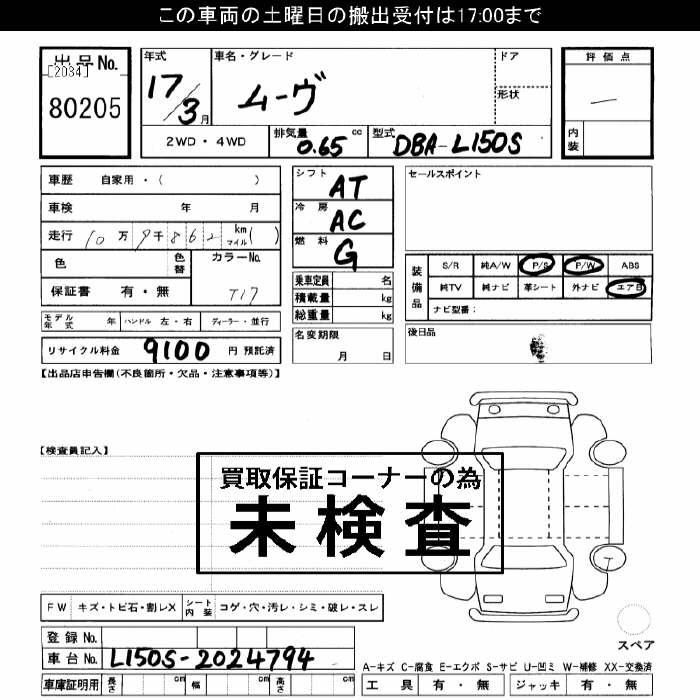 この車両の土曜日の搬出受付は17:00まで
出品No. [2034] 80205
年式 17/3月
車名・グレード ムーヴ
ドア
形状
評価点 —
内装
2WD・4WD 排気量 0.65 cc 型式 DBA-L150S
車歴 自家用・( )
車検 年 月
走行 10万9千862 km マイル( )
色 色替 カラーNo. T17
保証書 有・無
モデル年式 年 ハンドル 左・右 ディーラー・並行
リサイクル料金 9100 円 預託済
シフト AT
冷房 AC
燃料 G
乗車定員 名
積載量 kg
総重量 kg
名変期限 月 日
セールスポイント
装備品 S/R 純A/W P/S P/W ABS
純TV 純ナビ 革シート 外ナビ エアB
ナビ型番:
後日品
【出品店申告欄(不良箇所・欠品・注意事項等)】
【検査員記入】
買取保証コーナーの為
未検査
FW キズ・トビ石・割レX シート内装 コゲ・穴・汚レ・シミ・破レ・スレ
登録No.
車台No. L150S-2024794
車庫証明用 長さ cm 幅 cm 高さ cm
スペア
A-キズ C-腐食 E-エクボ S-サビ U-凹ミ W-補修 XX-交換済
工具 有・無 ジャッキ 有・無